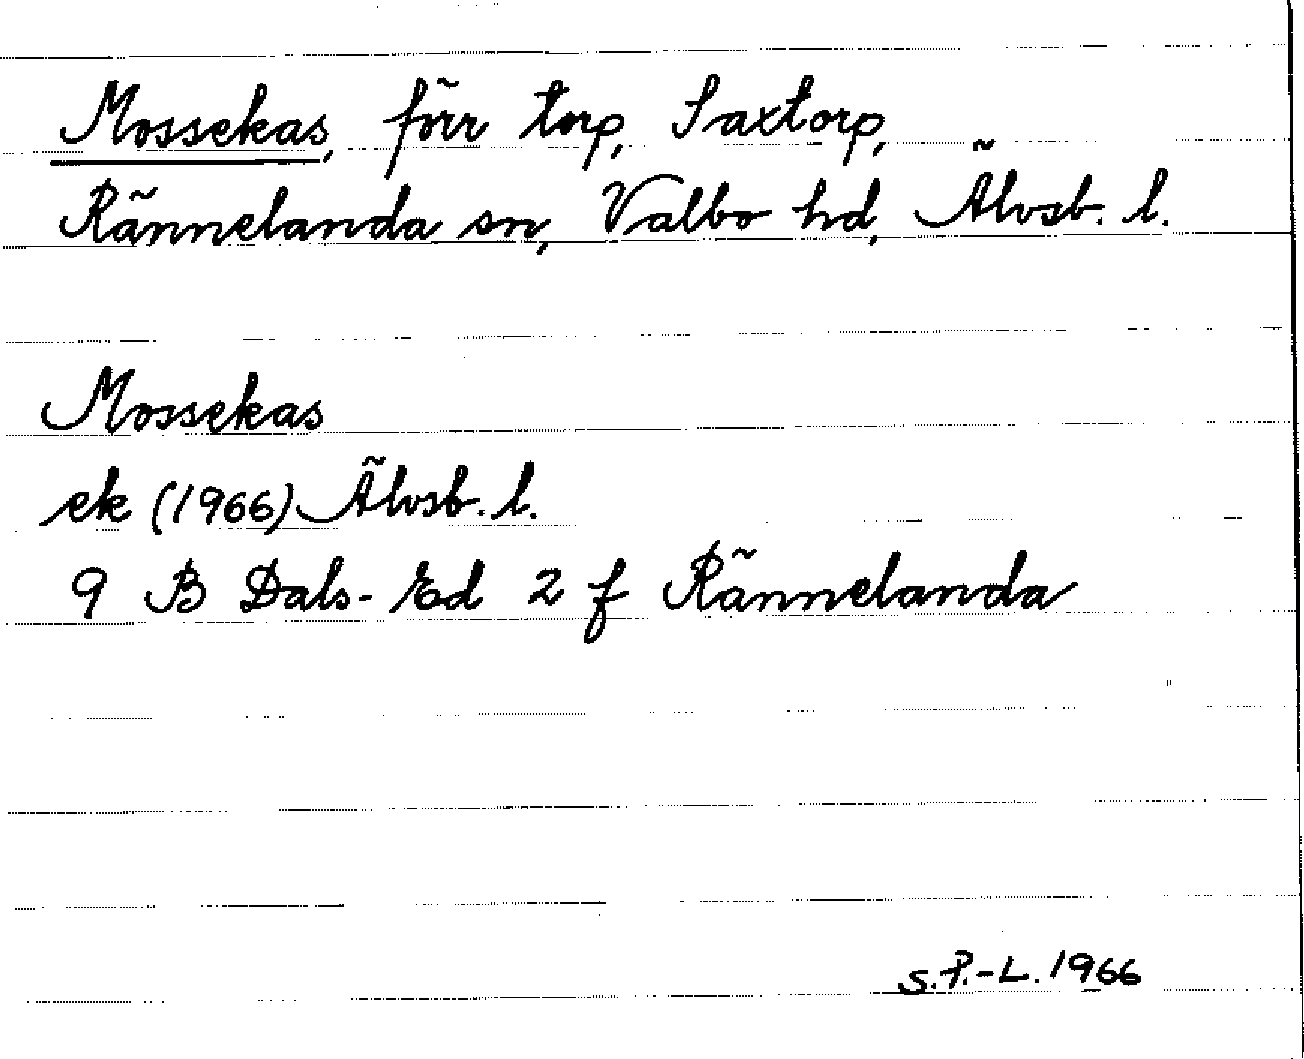 Mossekas, förr torp, Saxtorp,
Rännelanda sn, Valbo hd, Älvsb. l.
Mossekas
ek (1966) Älvsb. l.
9 B Dals-Ed 2 f Rännelanda
S.P.-L. 1966